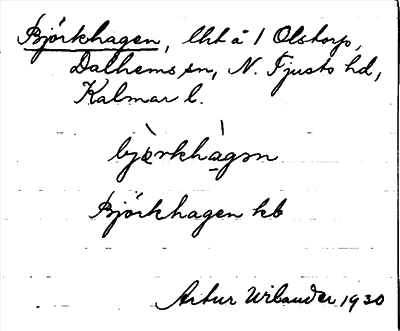 Björkhagen, lht å 1 Olstorp,
Dalhems sn, N. Tjusts hd,
Kalmar l.
bjærkhàgən
Björkhagen kb
Artur Wilander 1930